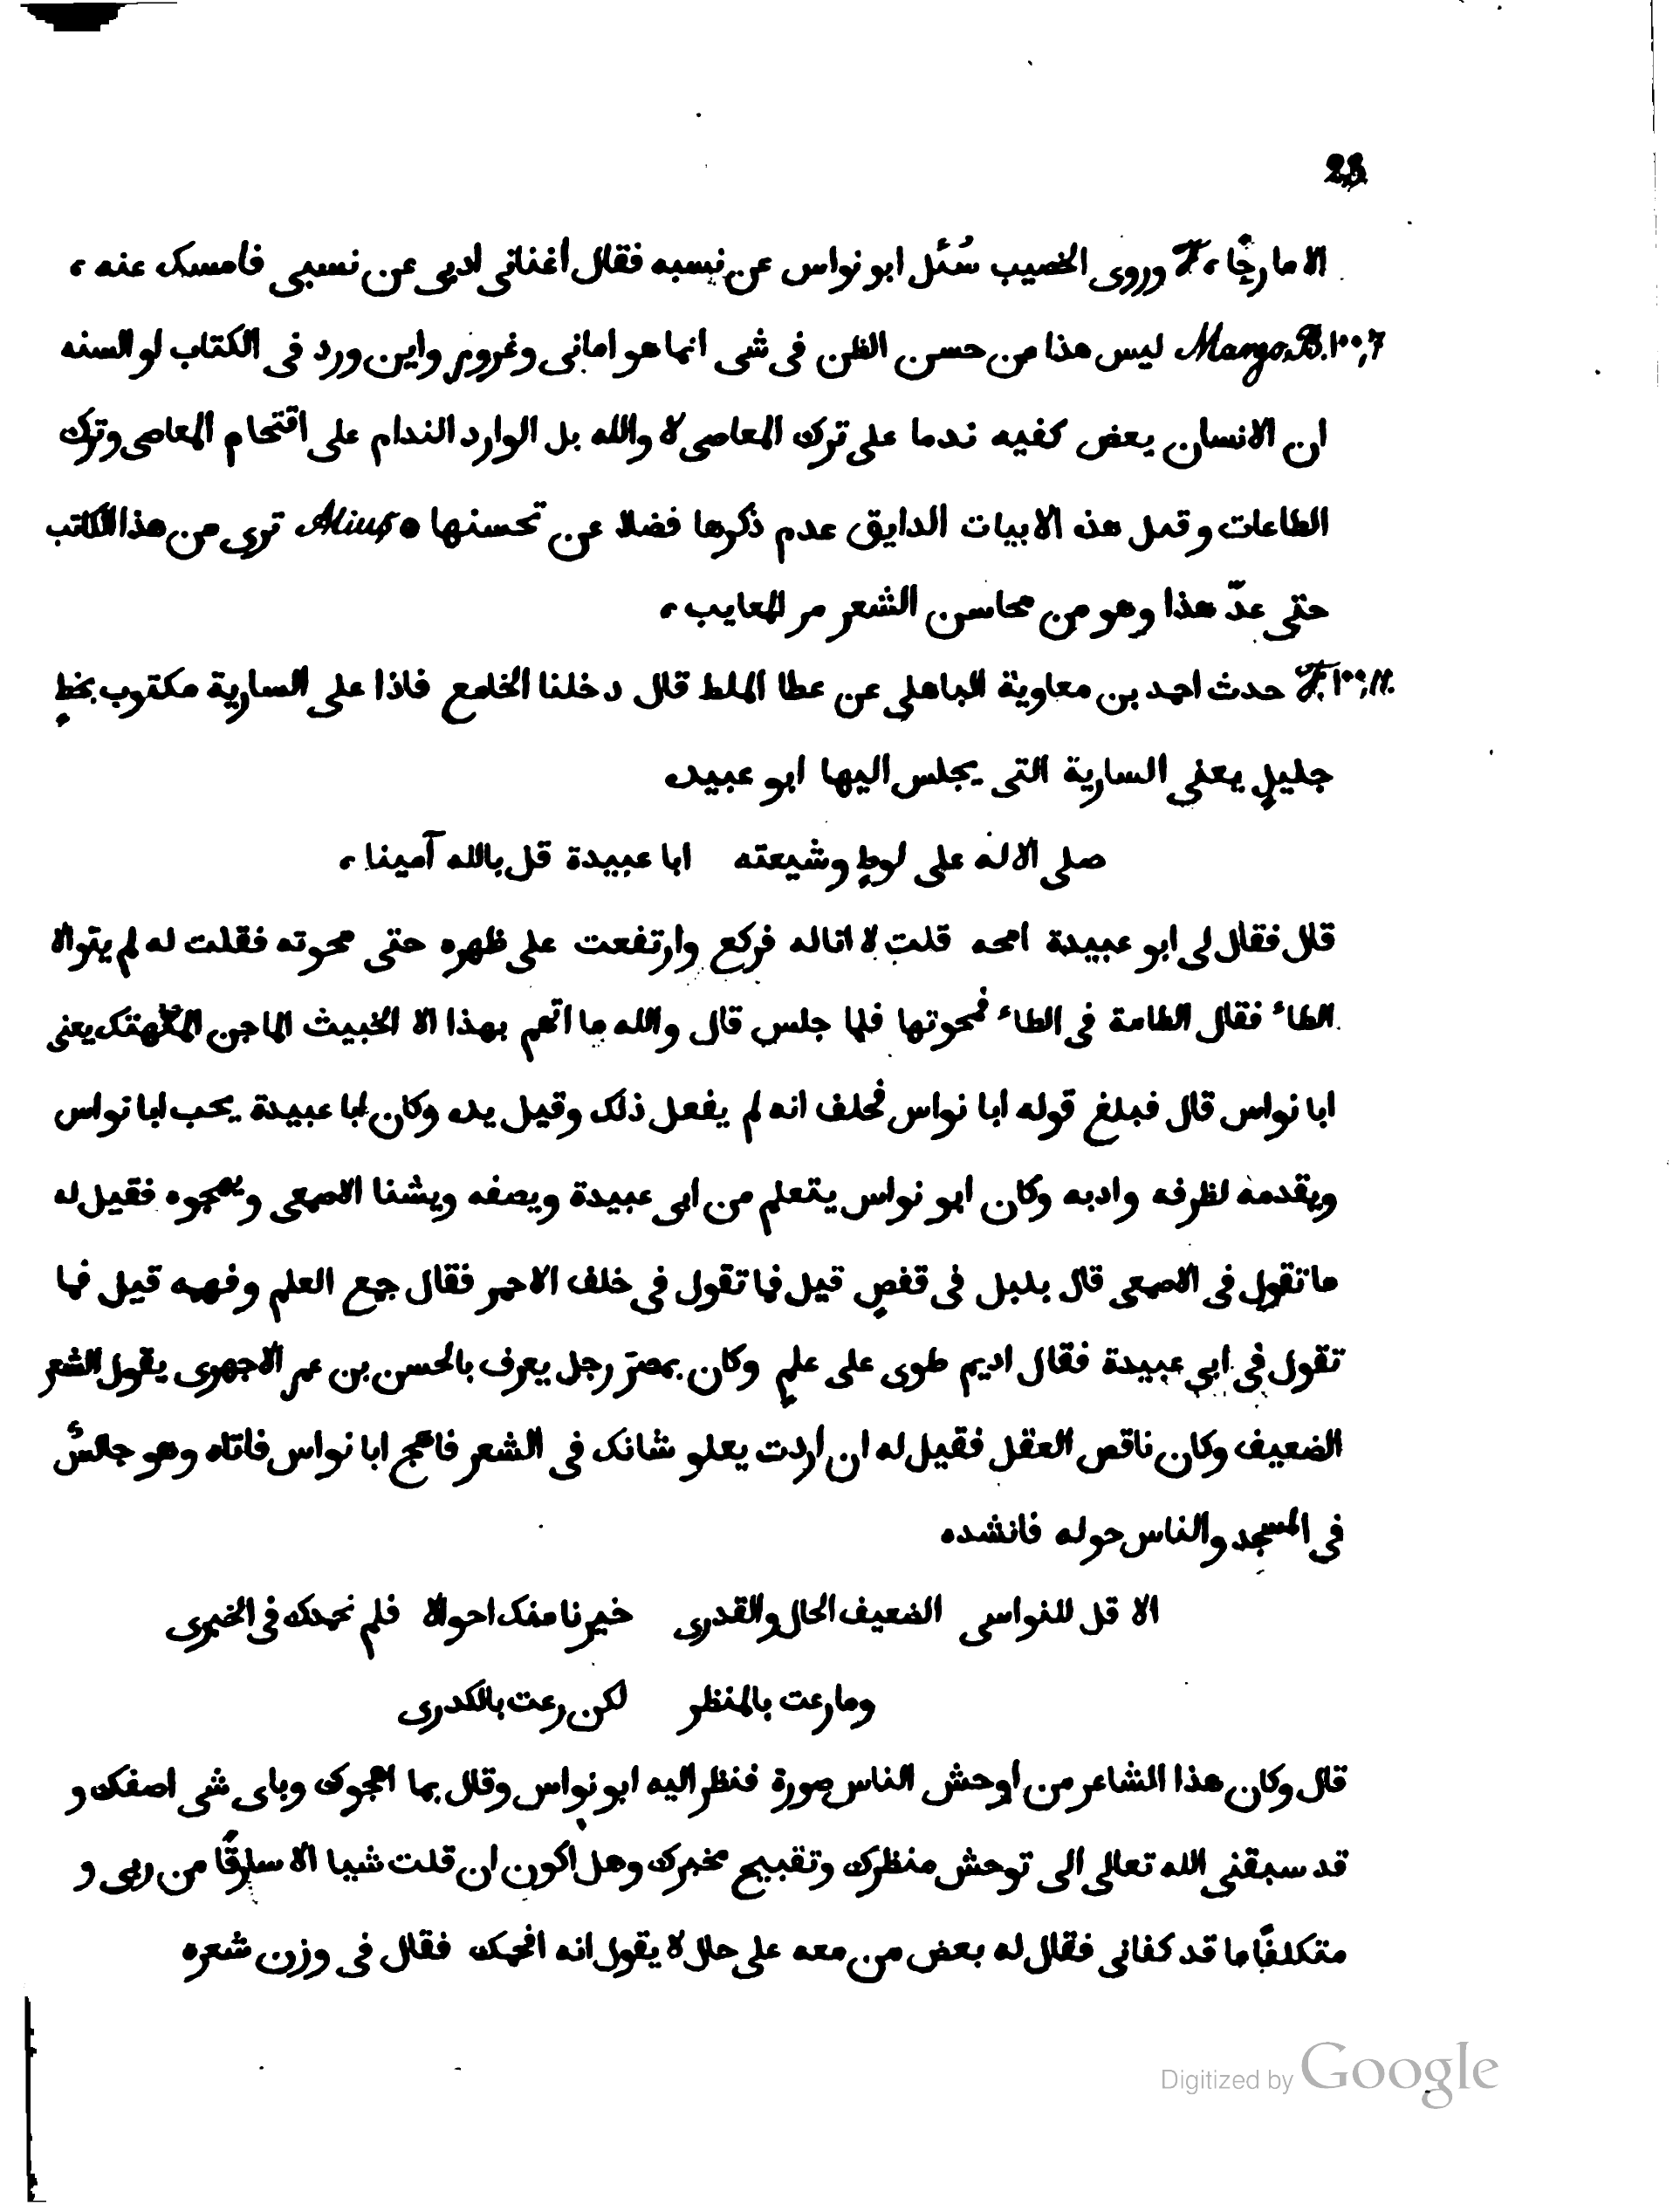 23
الا ما رجًا، F وروى الخصيب سُئل ابو نواس عن نسبه فقال اغنانى ادبى عن نسبى فامسك عنه،
Margo. B. ١٠٠,7 ليس هذا من حسن الظن فى شى انما هو امانى وغرور واين ورد فى الكتاب لو السنه
ان الانسان يعض كفيه ندما على ترك المعاصى لا والله بل الوارد الندام على اقتحام المعاصى وترك
الطاعات و قمل هذه الابيات الدايق عدم ذكرها فضلا عن تحسنها ٥ Alius ترى من هذا الكاتب
حتى عدّ هذا وهو من محاسن الشعر مر المعايب،
F. ١٠٠,11. حدث احمد بن معاوية الباهلى عن عطا الملط قال دخلنا الجامع فاذا على السارية مكتوب بخطٍ
جليلٍ يعنى السارية التى يجلس اليها ابو عبيده
صلى الاله على لوطٍ وشيعته ابا عبيدة قل بالله آمينا،
قال فقال لى ابو عبيدة امحه قلت لا اناله فركع وارتفعت على ظهره حتى محوته فقلت له لم يتوالا
الطاء فقال الطامة فى الطاء فمحوتها فلما جلس قال والله ما اتهم بهذا الا الخبيث الماجن المتهتك يعنى
ابا نواس قال فبلغ قوله ابا نواس فحلف انه لم يفعل ذلك وقبل يده وكان ابا عبيدة يحب ابا نواس
ويقدمه لظرفه وادبه وكان ابو نواس يتعلم من ابى عبيدة ويصفه ويشنا الاصمعى ويهجوه فقيل له
ما تقول فى الاصمعى قال بلبل فى قفصٍ قيل فما تقول فى خلف الاحمر فقال جمع العلم وفهمه قيل فما
تقول فى ابى عبيدة فقال اديم طوى على علمٍ وكان بمصر رجل يعرف بالحسن بن عمر الاجهرى يقول الشعر
الضعيف وكان ناقص العقل فقيل له ان اردت يعلو شانك فى الشعر فاهج ابا نواس فاتاه وهو جالسٌ
فى المسجد والناس حوله فانشده
الا قل للنواسى الضعيف الحال والقدرى خبرنا منك احوالا فلم نحمدك فى الخبرى
وما رعت بالمنظر لكن رعت بالكدرى
قال وكان هذا الشاعر من اوحش الناس صورة فنظر اليه ابو نواس وقال بما اهجوك وباى شى اصفك و
قد سبقنى الله تعالى الى توحش منظرك وتقبيح مخبرك وهل اكون ان قلت شيا الا سارقًا من ربى و
متكلفًا ما قد كفانى فقال له بعض من معه على حال لا يقول انه افحمك فقال فى وزن شعره
Digitized by Google